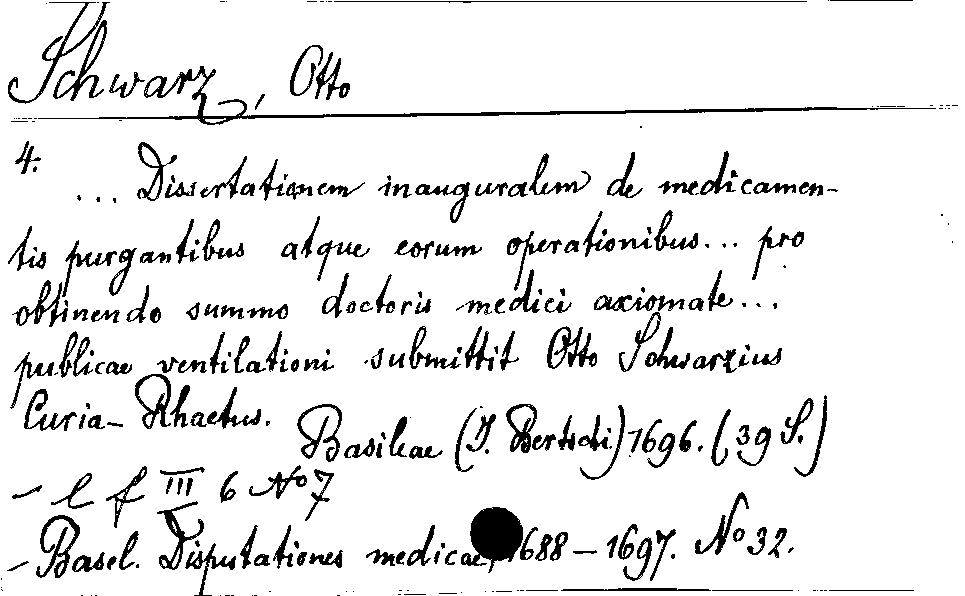 Schwarz, Otto
4.
... Dissertationem inauguralem de medicamen-
tis purgantibus atque eorum operationibus... pro
obtinendo summo doctoris medici axiomate...
publicae ventilationi submittit Otto Schwarzius
Curia-Rhaetus.
Basileae (J. Bertschi) 1696. (39 S.)
- l f III 6 No 7
- Basel. Disputationes medicae, 1688 - 1697. No 32.